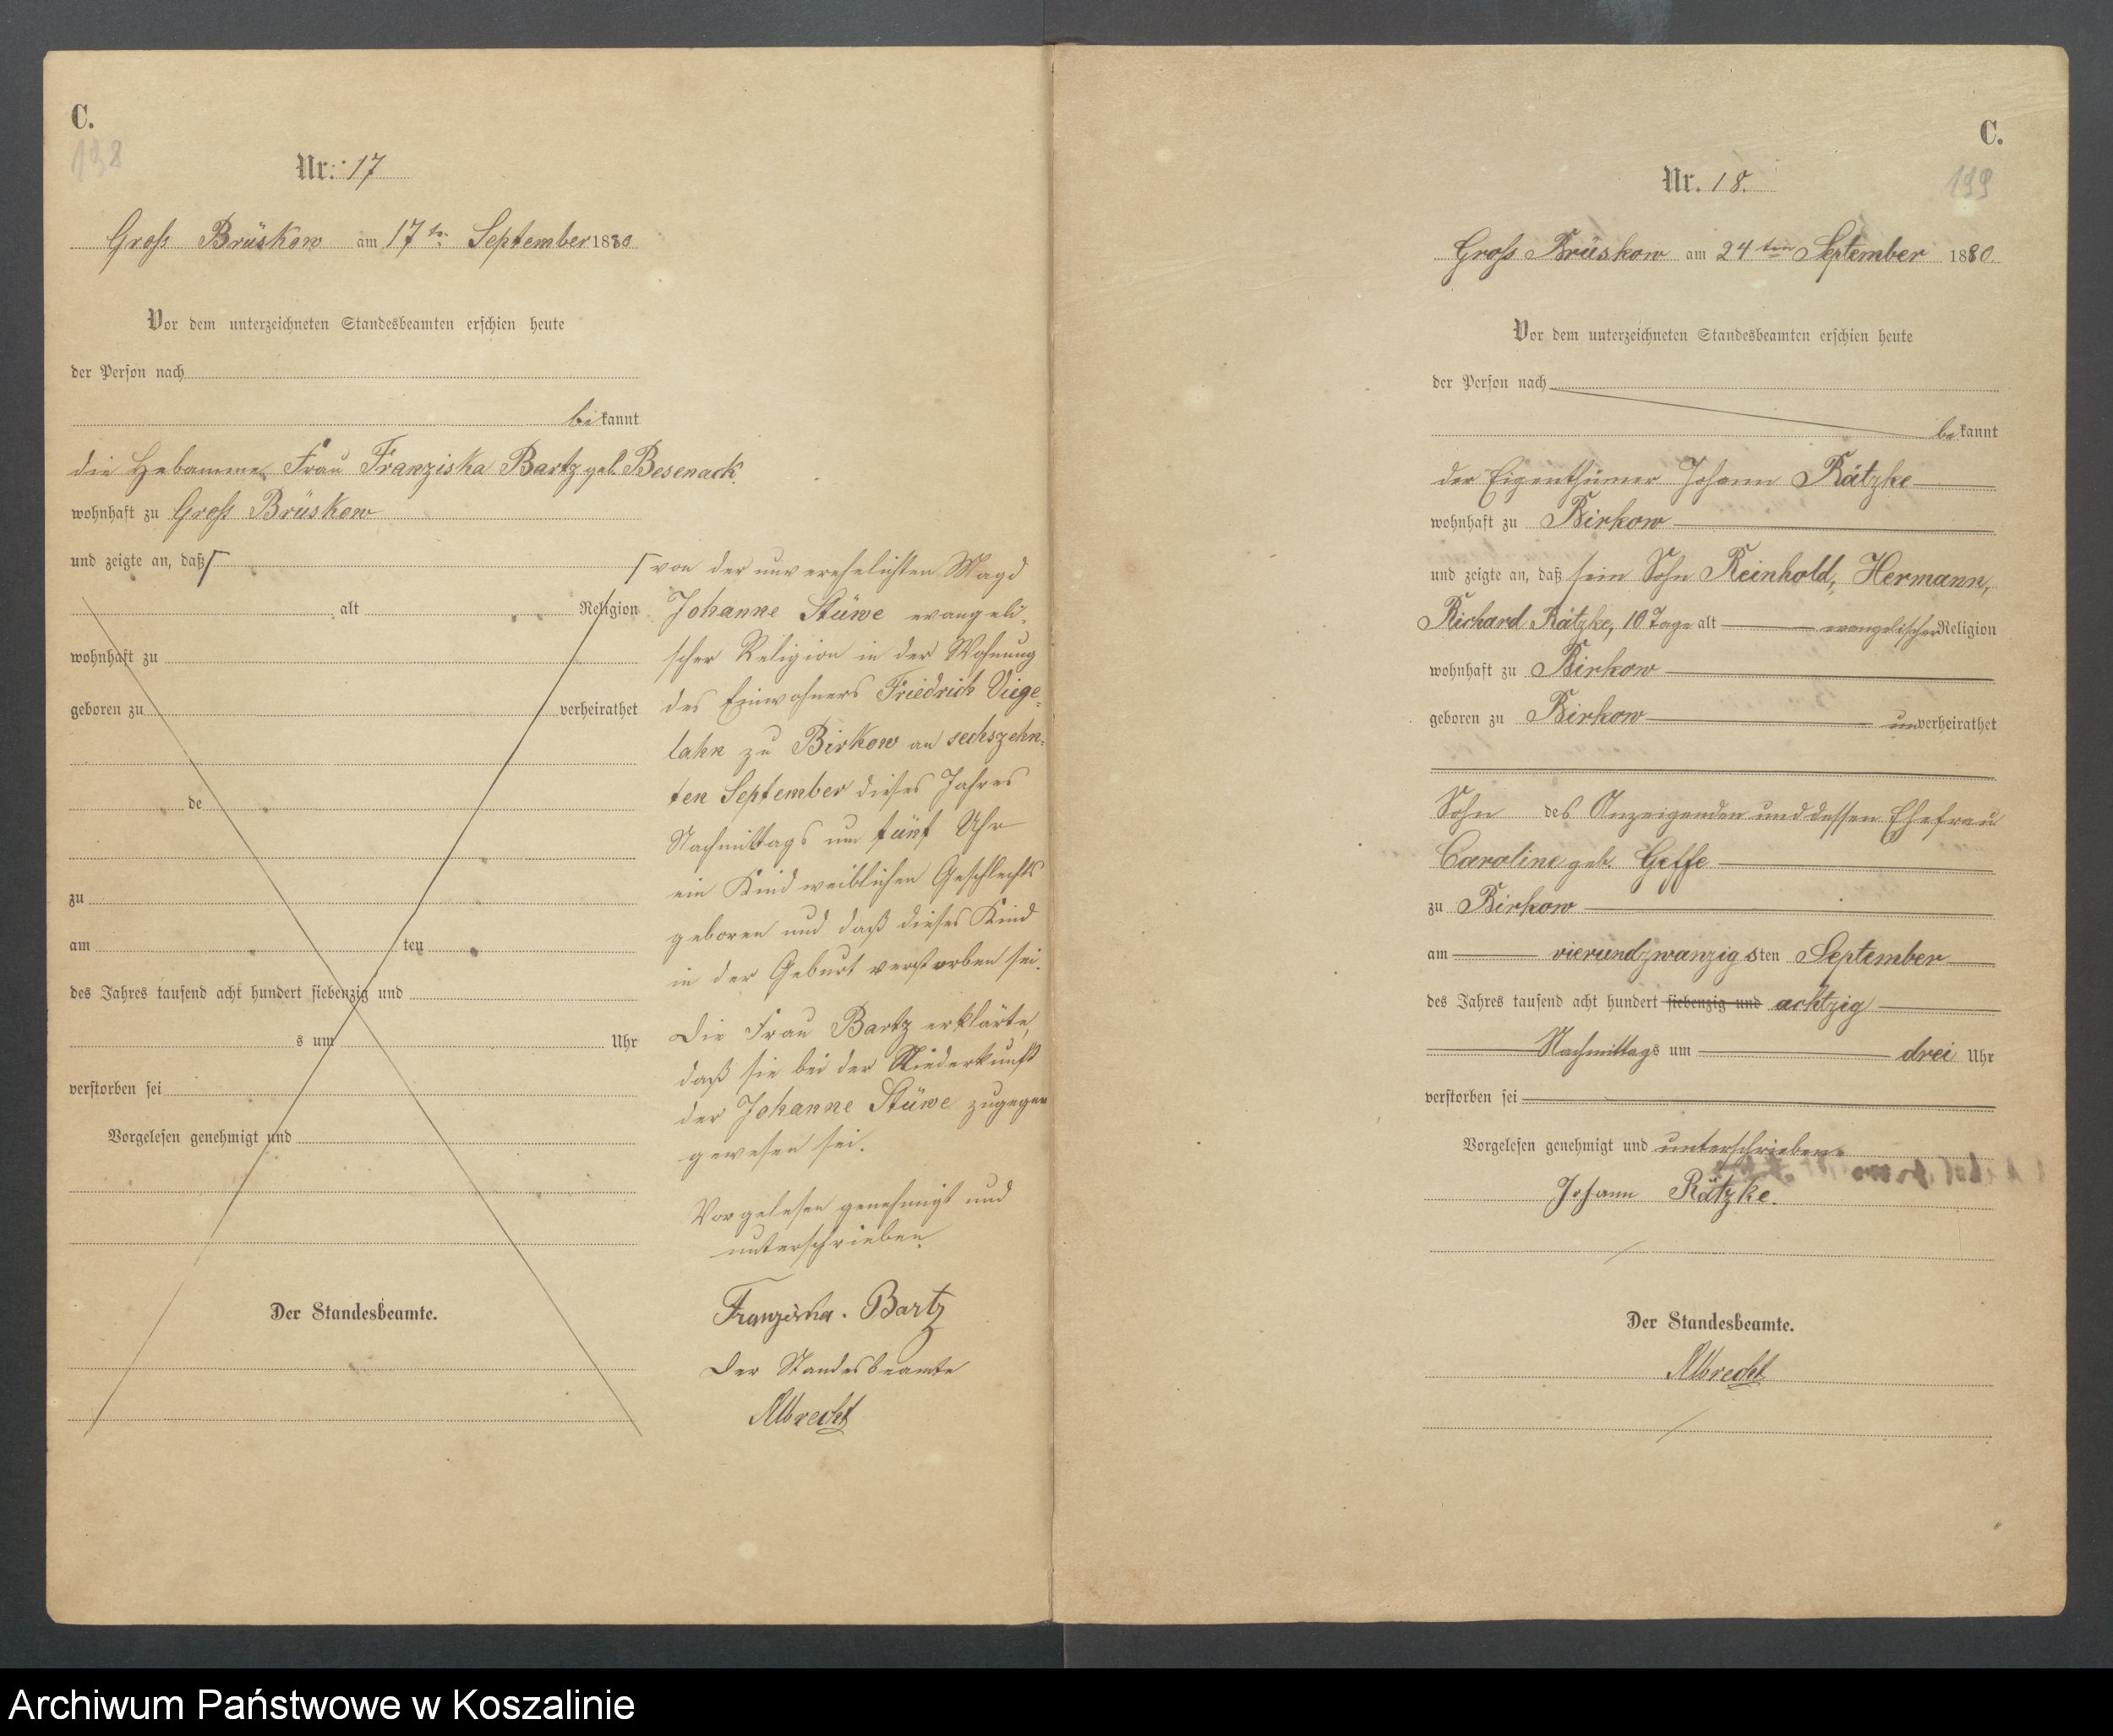 C.
138
Nr. 17
Gross Brüskow am 17ten September 1880
Vor dem unterzeichneten Standesbeamten erschien heute
der Person nach
bekannt
die Hebamme, Frau Franziska Bartz geb. Besenack.
wohnhaft zu Gross Brüskow
und zeigte an, daß
alt Religion
wohnhaft zu
geboren zu verheirathet
de
zu
am ten
des Jahres tausend acht hundert siebenzig und
s um Uhr
verstorben sei
Vorgelesen genehmigt und
Der Standesbeamte.
von der unverehelichten Magd
Johanne Stüwe evangeli-
scher Religion in der Wohnung
des Einwohners Friedrich Viege-
lahn zu Birkow am sechszehn-
ten September dieses Jahres
Nachmittags um fünf Uhr
ein Kind weiblichen Geschlechts
geboren und daß dieses Kind
in der Geburt verstorben sei.
Die Frau Bartz erklärte,
daß sie bei der Niederkunft
der Johanne Stüwe zugegen
gewesen sei.
Vorgelesen genehmigt und
unterschrieben
Franziska. Bartz
Der Standesbeamte
Albrecht
C.
199
Nr. 18.
Gross Brüskow am 24ten September 1880.
Vor dem unterzeichneten Standesbeamten erschien heute
der Person nach
bekannt
der Eigenthümer Johann Rätzke
wohnhaft zu Birkow
und zeigte an, daß sein Sohn Reinhold, Hermann,
Richard Rätzke, 10 Tage alt evangelischer Religion
wohnhaft zu Birkow
geboren zu Birkow unverheirathet
Sohn des Anzeigenden und dessen Ehefrau
Caroline geb. Geffe
zu Birkow
am vierundzwanzigsten September
des Jahres tausend acht hundert siebenzig und achtzig
Nachmittags um drei Uhr
verstorben sei
Vorgelesen genehmigt und unterschrieben
Johann Rätzke.
Der Standesbeamte.
Albrecht
Archiwum Państwowe w Koszalinie